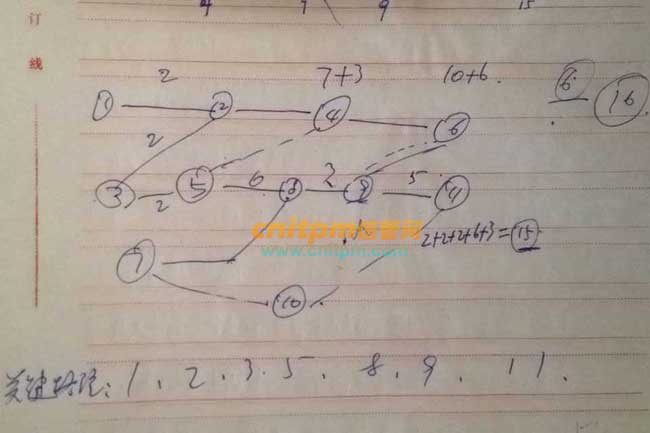 4 9 15
订
2 7+3 10+6. 6
线
16
1 2 4 6
2
3 2 5 6 8 3 9 5 11
cnitpm信管网
www.cnitpm.com
2+2+2+6+3=15
7
10
关键路径: 1、2、3、5、8、9、11.